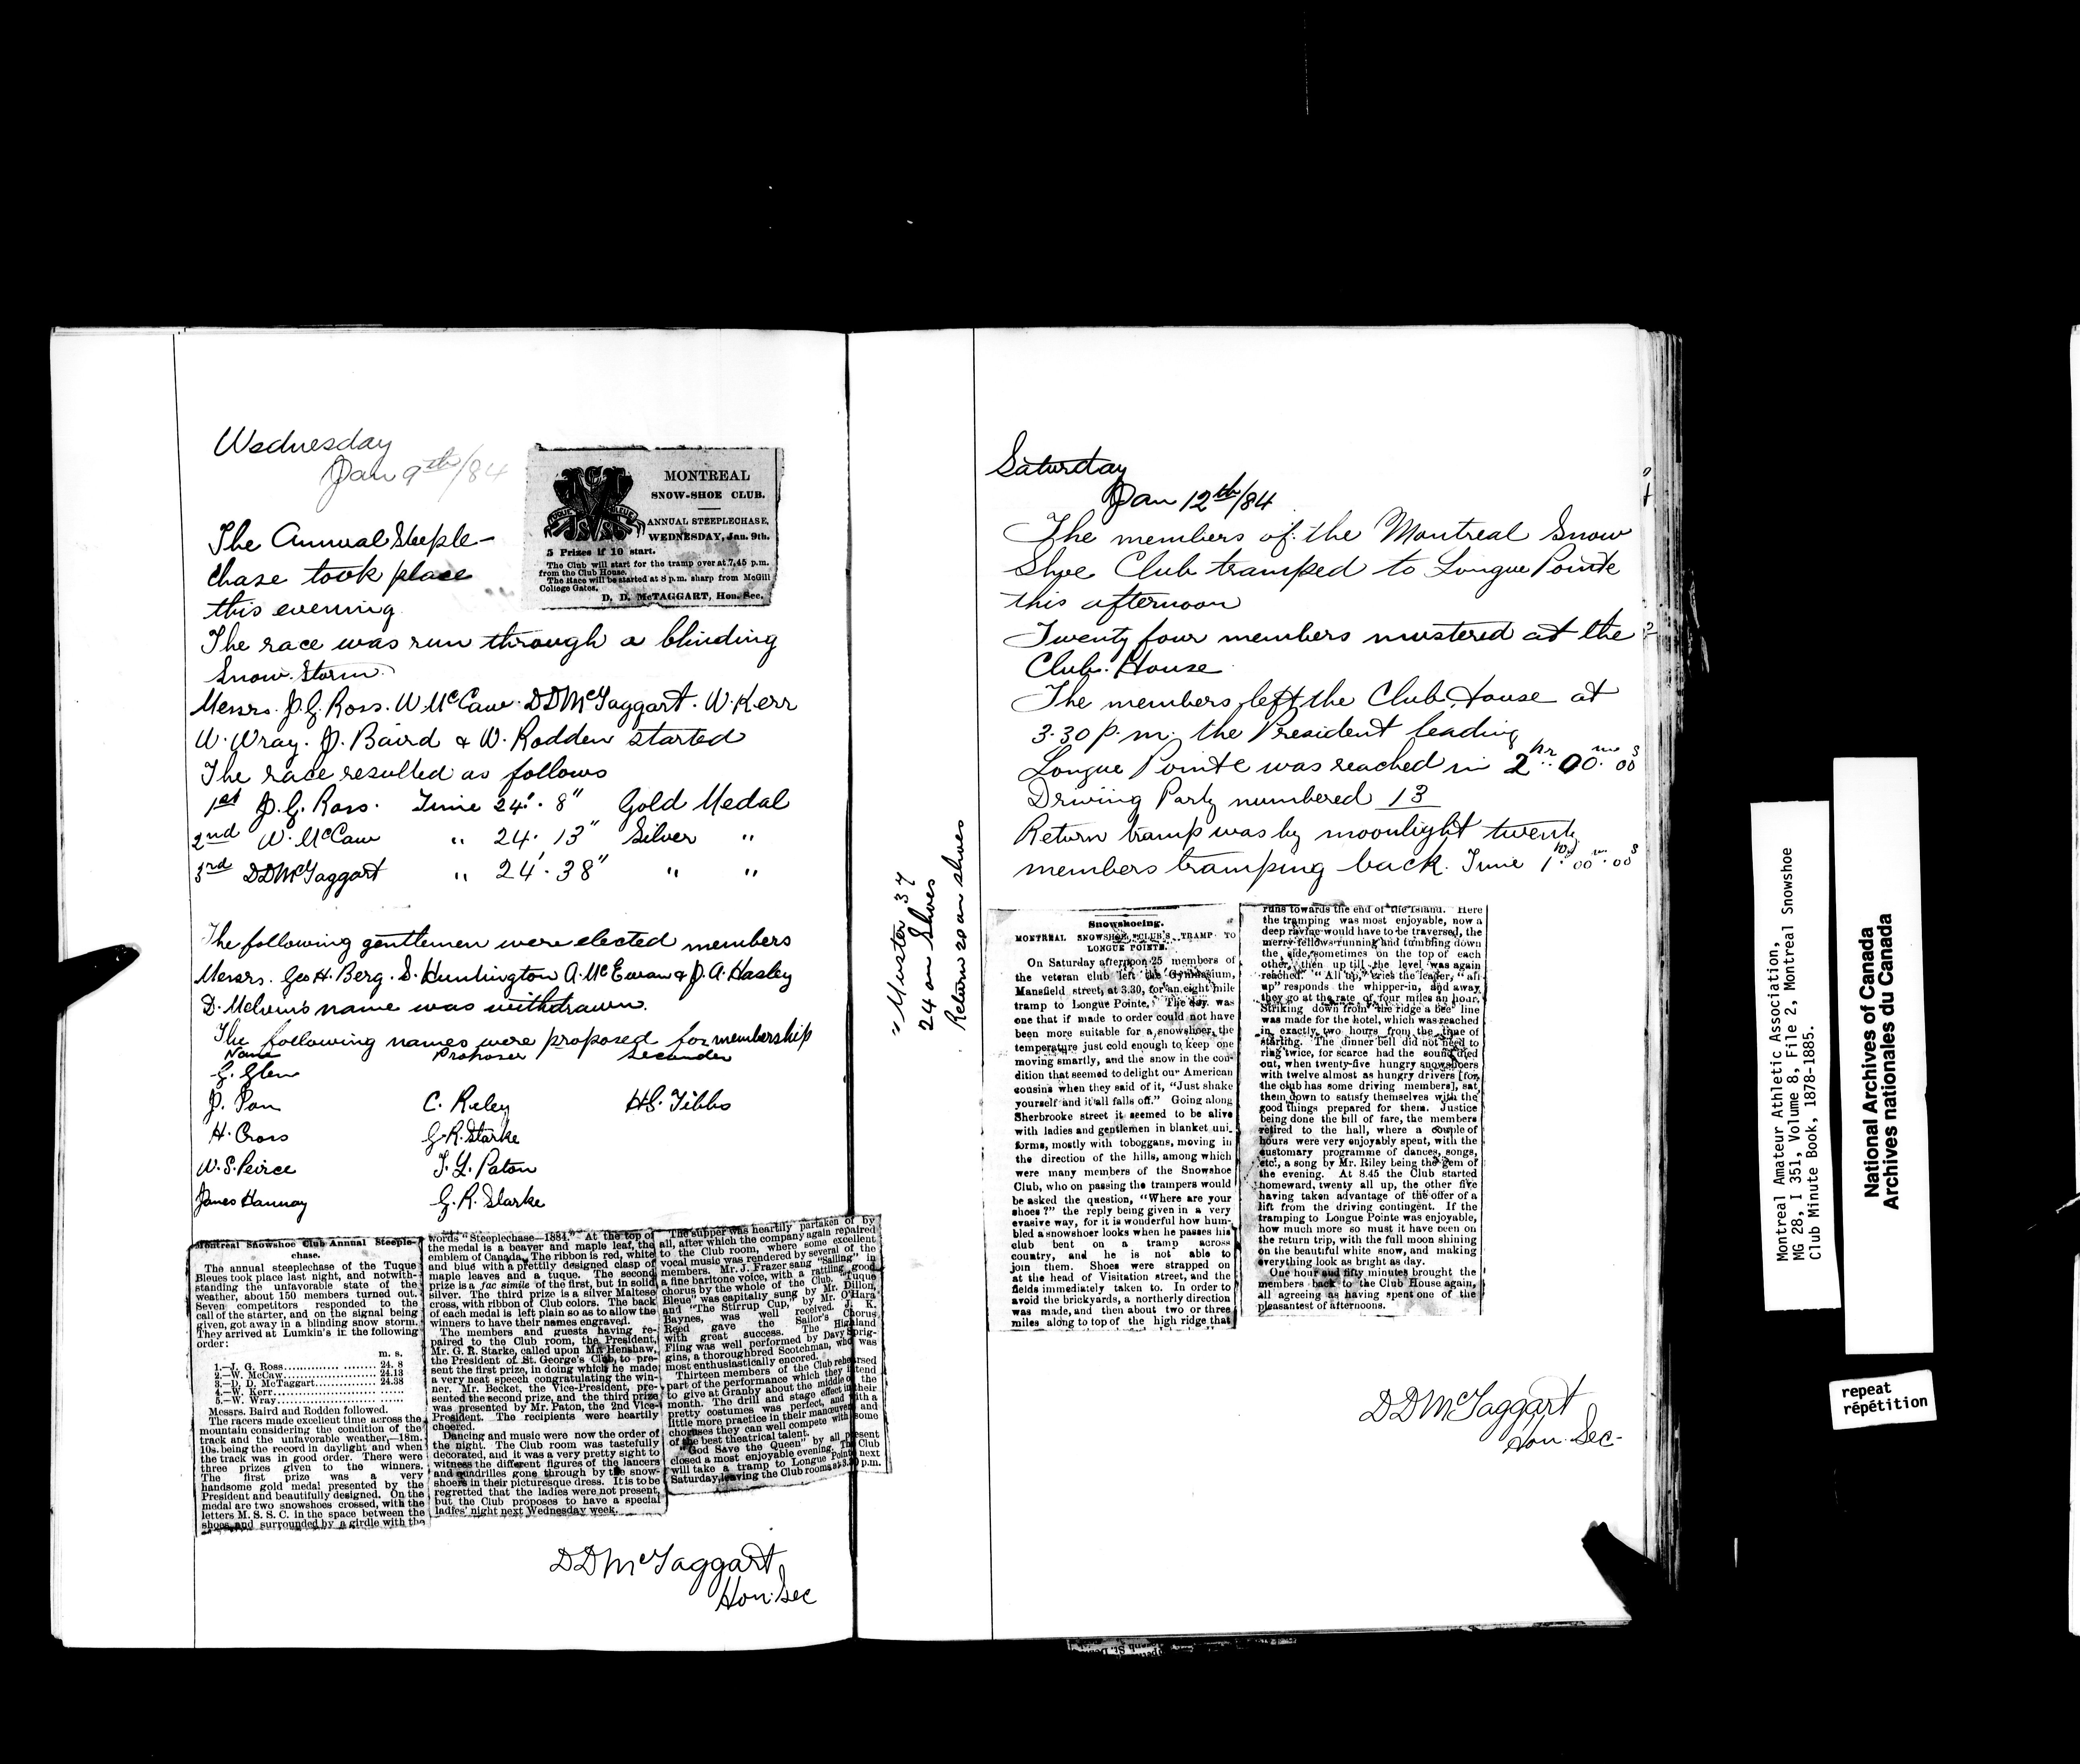 Wednesday
Jan 9th/84
MONTREAL
SNOW-SHOE CLUB.
TUQUE BLEUE
ANNUAL STEEPLECHASE,
WEDNESDAY, Jan. 9th.
5 Prizes if 10 start.
The Club will start for the tramp over at 7.45 p.m.
from the Club House.
The Race will be started at 8 p.m. sharp from McGill
College Gates.
D. D. McTAGGART, Hon. Sec.
The Annual Steeple-
chase took place
this evening
The race was run through a blinding
Snow. Storm.
Messrs. J.G. Ross. W McCaw. DDMcTaggart. W. Kerr
W. Wray. J. Baird & W. Rodden started
The race resulted as follows
1st J.G. Ross. Time 24'. 8" Gold Medal
2nd W. McCaw " 24. 13" Silver "
3rd DDMcTaggart " 24'. 38" " "
The following gentlemen were elected members
Messrs. Geo H. Berg. S. Huntington A. McEwan & J.A. Hasley
D. Melvin's name was withdrawn.
The following names were proposed for membership
Name Proposer Seconder
G. Glen
J. Pan C. Riley H.S. Tibbs
H. Cross G.R. Starke
W.S. Peirce T.L. Paton
James Hannay G.R. Starke
Montreal Snowshoe Club Annual Steeple-
chase.
The annual steeplechase of the Tuque
Bleues took place last night, and notwith-
standing the unfavorable state of the
weather, about 150 members turned out.
Seven competitors responded to the
call of the starter, and on the signal being
given, got away in a blinding snow storm.
They arrived at Lumkin's in the following
order:
m. s.
1.—J. G. Ross.................... 24. 8
2.—W. McCaw.................... 24.13
3.—D. D. McTaggart............. 24.38
4.—W. Kerr....................
5.—W. Wray....................
Messrs. Baird and Rodden followed.
The racers made excellent time across the
mountain considering the condition of the
track and the unfavorable weather,—18m.
10s. being the record in daylight and when
the track was in good order. There were
three prizes given to the winners.
The first prize was a very
handsome gold medal presented by the
President and beautifully designed. On the
medal are two snowshoes crossed, with the
letters M. S. S. C. in the space between the
shoes and surrounded by a girdle with the
words "Steeplechase—1884." At the top of
the medal is a beaver and maple leaf, the
emblem of Canada. The ribbon is red, white
and blue with a prettily designed clasp of
maple leaves and a tuque. The second
prize is a fac simile of the first, but in solid
silver. The third prize is a silver Maltese
cross, with ribbon of Club colors. The back
of each medal is left plain so as to allow the
winners to have their names engraved.
The members and guests having re-
paired to the Club room, the President,
Mr. G. R. Starke, called upon Mr. Henshaw,
the President of St. George's Club, to pre-
sent the first prize, in doing which he made
a very neat speech congratulating the win-
ner. Mr. Becket, the Vice-President, pre-
sented the second prize, and the third prize
was presented by Mr. Paton, the 2nd Vice-
President. The recipients were heartily
cheered.
Dancing and music were now the order of
the night. The Club room was tastefully
decorated, and it was a very pretty sight to
witness the different figures of the lancers
and quadrilles gone through by the snow-
shoers in their picturesque dress. It is to be
regretted that the ladies were not present,
but the Club proposes to have a special
ladies' night next Wednesday week.
The supper was heartily partaken of by
all, after which the company again repaired
to the Club room, where some excellent
vocal music was rendered by several of the
members. Mr. J. Frazer sang "Sailing" in
a fine baritone voice, with a rattling good
chorus by the whole of the Club. "Tuque
Bleue" was capitally sung by Mr. Dillon,
and "The Stirrup Cup," by Mr. O'Hara
Baynes, was well received. J. K.
Reed gave the Sailor's Chorus
with great success. The Highland
Fling was well performed by Davy Sprig-
gins, a thoroughbred Scotchman, who was
most enthusiastically encored.
Thirteen members of the Club rehearsed
part of the performance which they intend
to give at Granby about the middle of the
month. The drill and stage effect in their
pretty costumes was perfect, and with a
little more practice in their manœuvres and
choruses they can well compete with some
of the best theatrical talent.
"God Save the Queen" by all present
closed a most enjoyable evening. The Club
will take a tramp to Longue Pointe next
Saturday, leaving the Club rooms at 3.30 p.m.
DDMcTaggart
Hon. Sec
"Muster 37
24 on Shoes
Return 20 on shoes
Saturday
Jan 12th/84
The members of the Montreal Snow
Shoe Club tramped to Longue Pointe
this afternoon
Twenty four members mustered at the
Club. House
The members left the Club House at
3.30 p.m. the President leading
Longue Pointe was reached in 2hr. 00m. 00s
Driving Party numbered 13
Return tramp was by moonlight twenty
members tramping back. Time 1hr. 00m. 00s
Snowshoeing.
MONTREAL SNOWSHOE CLUB'S TRAMP TO
LONGUE POINTE.
On Saturday afternoon 25 members of
the veteran club left the Gymnasium,
Mansfield street, at 3.30, for an eight mile
tramp to Longue Pointe. The day was
one that if made to order could not have
been more suitable for a snowshoer, the
temperature just cold enough to keep one
moving smartly, and the snow in the con-
dition that seemed to delight our American
cousins when they said of it, "Just shake
yourself and it all falls off." Going along
Sherbrooke street it seemed to be alive
with ladies and gentlemen in blanket uni-
forms, mostly with toboggans, moving in
the direction of the hills, among which
were many members of the Snowshoe
Club, who on passing the trampers would
be asked the question, "Where are your
shoes?" the reply being given in a very
evasive way, for it is wonderful how hum-
bled a snowshoer looks when he passes his
club bent on a tramp across
country, and he is not able to
join them. Shoes were strapped on
at the head of Visitation street, and the
fields immediately taken to. In order to
avoid the brickyards, a northerly direction
was made, and then about two or three
miles along to top of the high ridge that
runs towards the end of the Island. Here
the tramping was most enjoyable, now a
deep ravine would have to be traversed, the
merry fellows running and tumbling down
the side, sometimes on the top of each
other, then up till the level was again
reached. "All up," cries the leader, "all
up" responds the whipper-in, and away
they go at the rate of four miles an hour.
Striking down from the ridge a bee line
was made for the hotel, which was reached
in exactly two hours from the time of
starting. The dinner bell did not need to
ring twice, for scarce had the sound died
out, when twenty-five hungry snowshoers
with twelve almost as hungry drivers [for
the club has some driving members], sat
them down to satisfy themselves with the
good things prepared for them. Justice
being done the bill of fare, the members
retired to the hall, where a couple of
hours were very enjoyably spent, with the
customary programme of dances, songs,
etc., a song by Mr. Riley being the gem of
the evening. At 8.45 the Club started
homeward, twenty all up, the other five
having taken advantage of the offer of a
lift from the driving contingent. If the
tramping to Longue Pointe was enjoyable,
how much more so must it have been on
the return trip, with the full moon shining
on the beautiful white snow, and making
everything look as bright as day.
One hour and fifty minutes brought the
members back to the Club House again,
all agreeing as having spent one of the
pleasantest of afternoons.
DDMcTaggart
Hon. Sec-
Montreal Amateur Athletic Association,
MG 28, I 351, Volume 8, File 2, Montreal Snowshoe
Club Minute Book, 1878-1885.
National Archives of Canada
Archives nationales du Canada
repeat
répétition